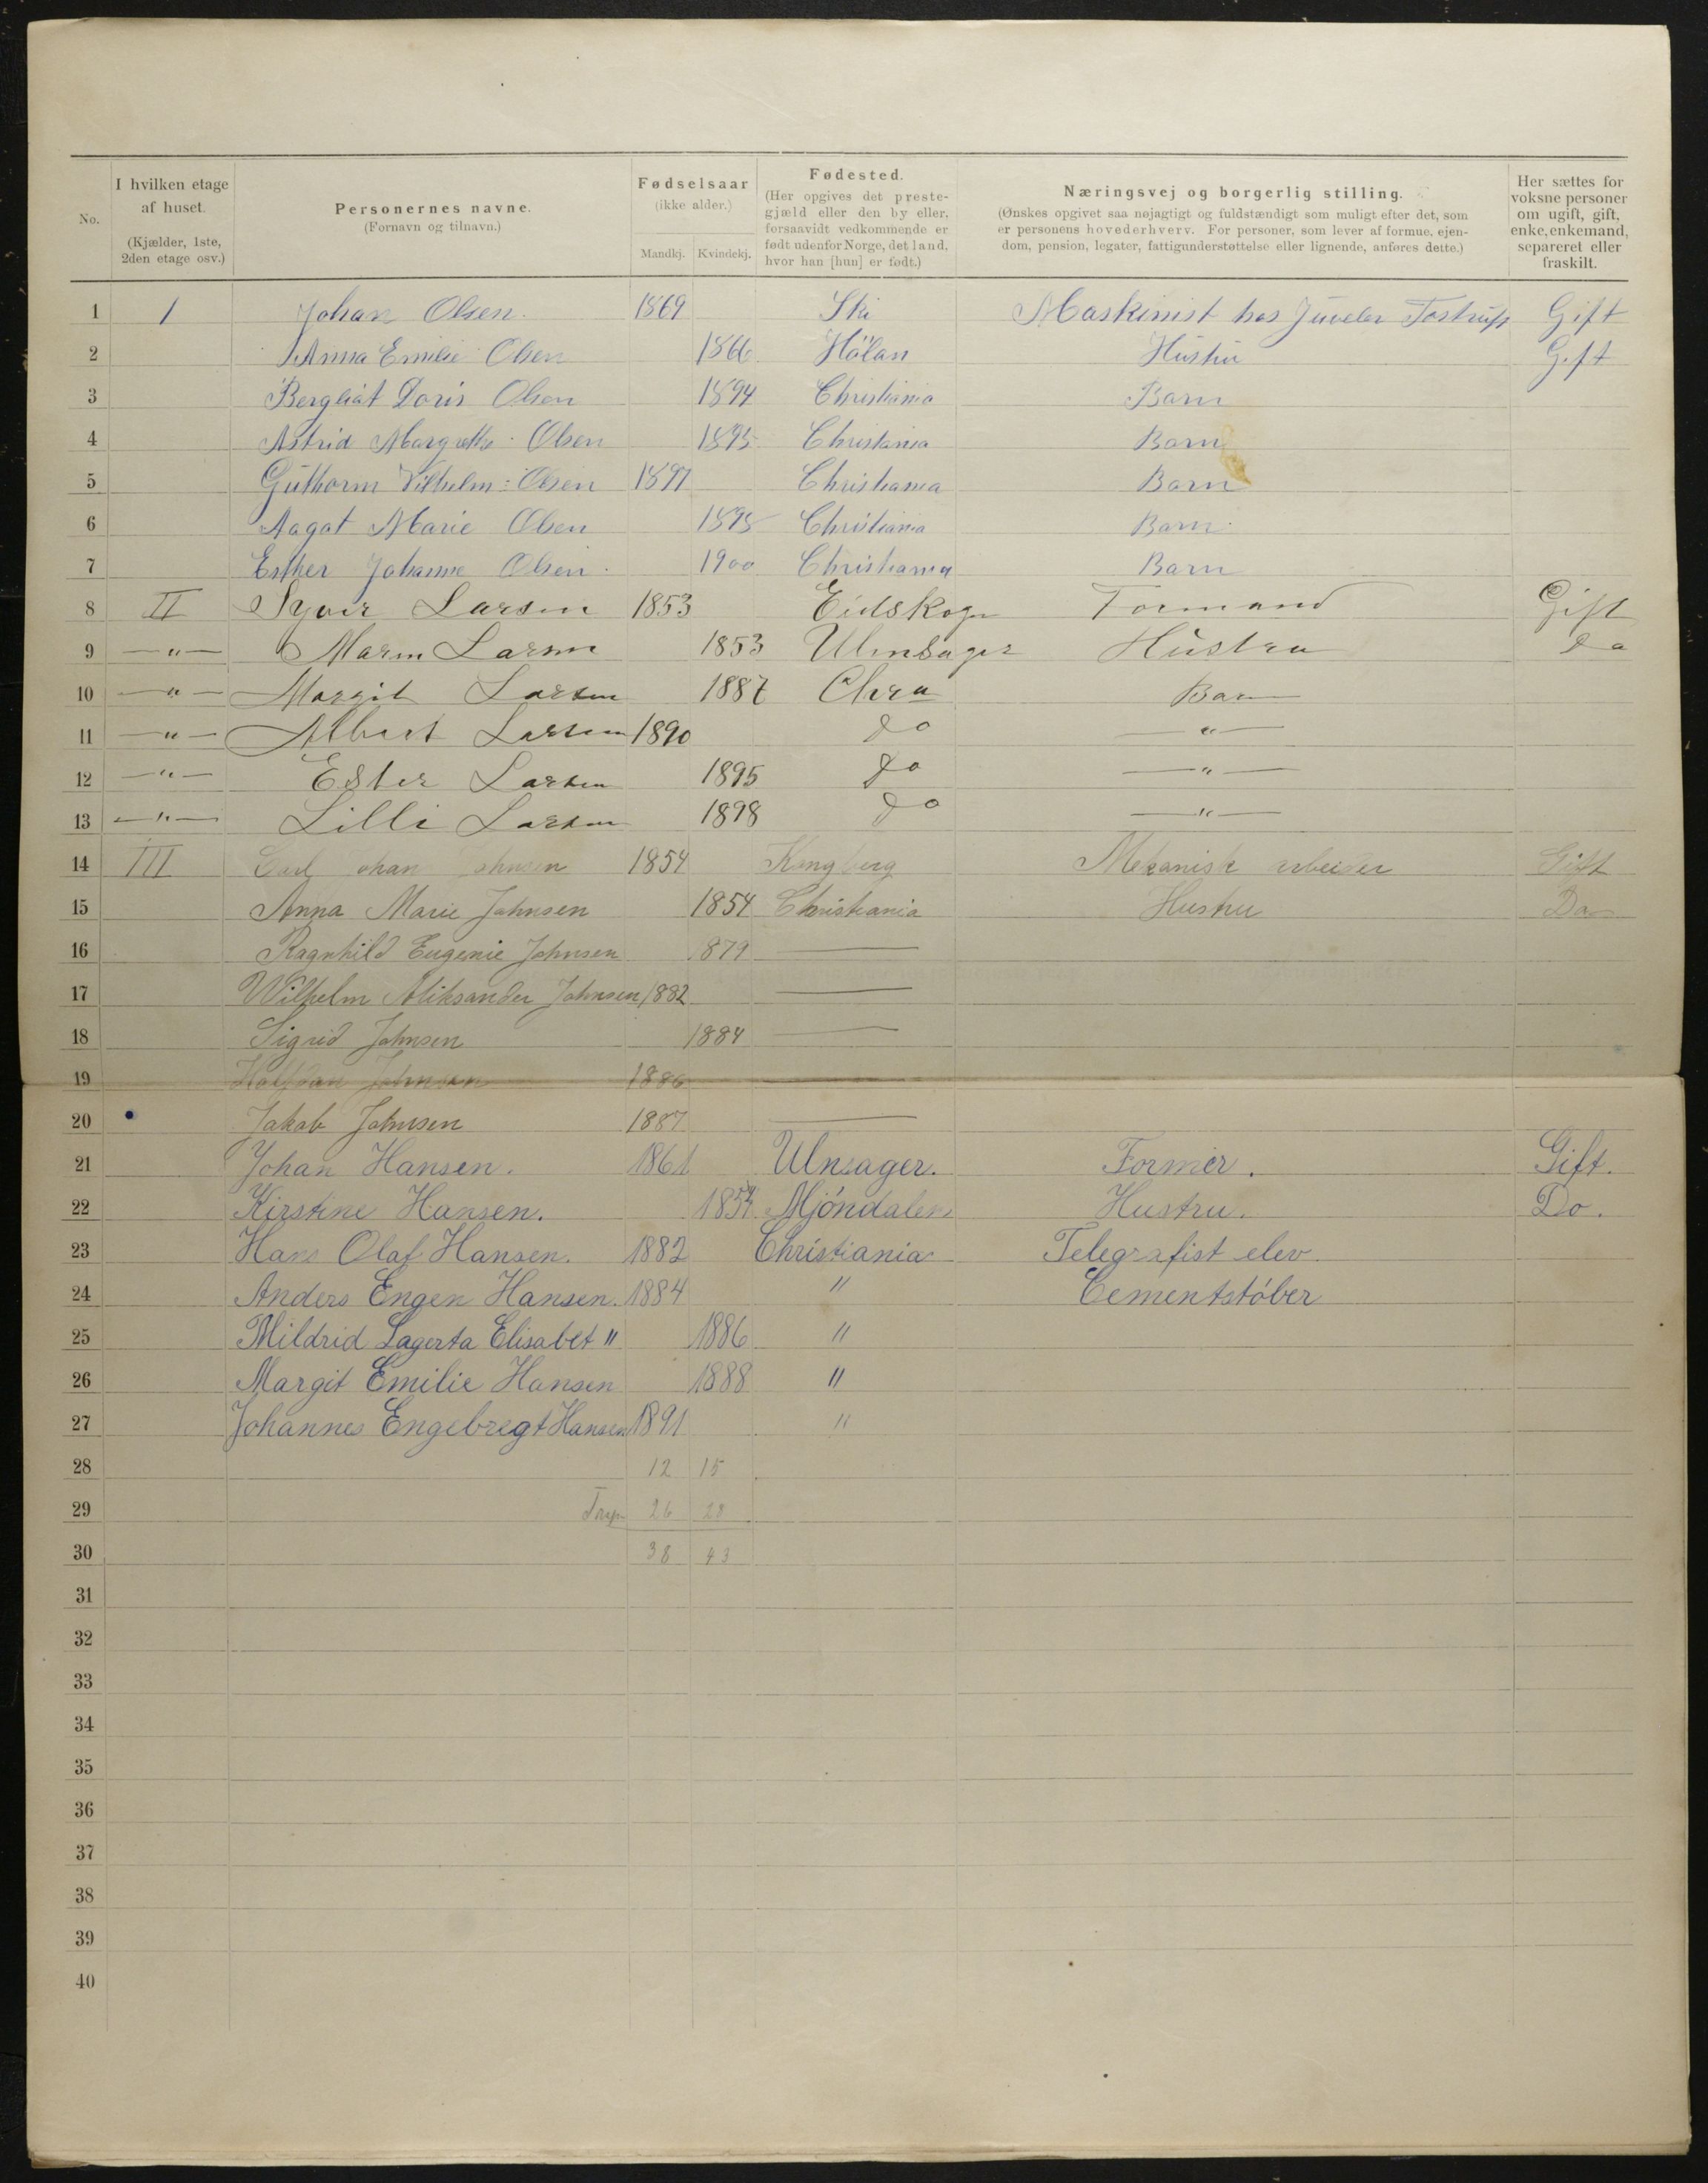 No.
I hvilken etage af huset. (Kjælder, 1ste, 2den etage osv.)
Personernes navne. (Fornavn og tilnavn.)
Fødselsaar (ikke alder.) Mandkj. Kvindekj.
Fødested. (Her opgives det prestegjæld eller den by eller, forsaavidt vedkommende er født udenfor Norge, det land, hvor han [hun] er født.)
Næringsvej og borgerlig stilling. (Ønskes opgivet saa nøjagtigt og fuldstændigt som muligt efter det, som er personens hovederhverv. For personer, som lever af formue, ejendom, pension, legater, fattigunderstøttelse eller lignende, anføres dette.)
Her sættes for voksne personer om ugift, gift, enke, enkemand, separeret eller fraskilt.
1 1 Johan Olsen. 1869 Ski Maskinist hos Juveler Tostrup Gift
2 Anna Emilie Olsen 1866 Hölan Hustru Gift
3 Bergliot Doris Olsen 1894 Christiania Barn
4 Astrid Margrethe Olsen 1895 Christiania Barn
5 Guthorm Vilhelm Olsen 1897 Christiania Barn
6 Aagot Marie Olsen 1898 Christiania Barn
7 Esther Johanne Olsen 1900 Christiania Barn
8 II Syver Larsen 1853 Eidskogn Formand Gift
9 —"— Maren Larsen 1853 Ulensager Hustru Do
10 —"— Margit Larsen 1887 Chra Barn
11 —"— Albert Larsen 1890 Do —"—
12 —"— Ester Larsen 1895 Do —"—
13 —"— Lilli Larsen 1898 Do —"—
14 III Carl Johan Johnsen 1854 Kongberg Mekanisk arbeider Gift
15 Anna Marie Johnsen 1854 Christiania Hustru Do
16 Ragnhild Eugenie Johnsen 1879 —
17 Wilhelm Aliksander Johnsen 1882 —
18 Sigrid Johnsen 1884 —
19 Halfdan Johnsen 1886 —
20 Jakob Johnsen 1887 —
21 Johan Hansen. 1861 Ulnsager. Former. Gift.
22 Kirstine Hansen. 1854 Mjöndalen Hustru. Do.
23 Hans Olaf Hansen. 1882 Christiania Telegrafist elev
24 Anders Engen Hansen. 1884 " Cementstöber
25 Mildrid Lagerta Elisabet " 1886 "
26 Margit Emilie Hansen 1888 "
27 Johannes Engebregt Hansen 1891 "
28 12 15
29 26 28
30 38 43
31
32
33
34
35
36
37
38
39
40